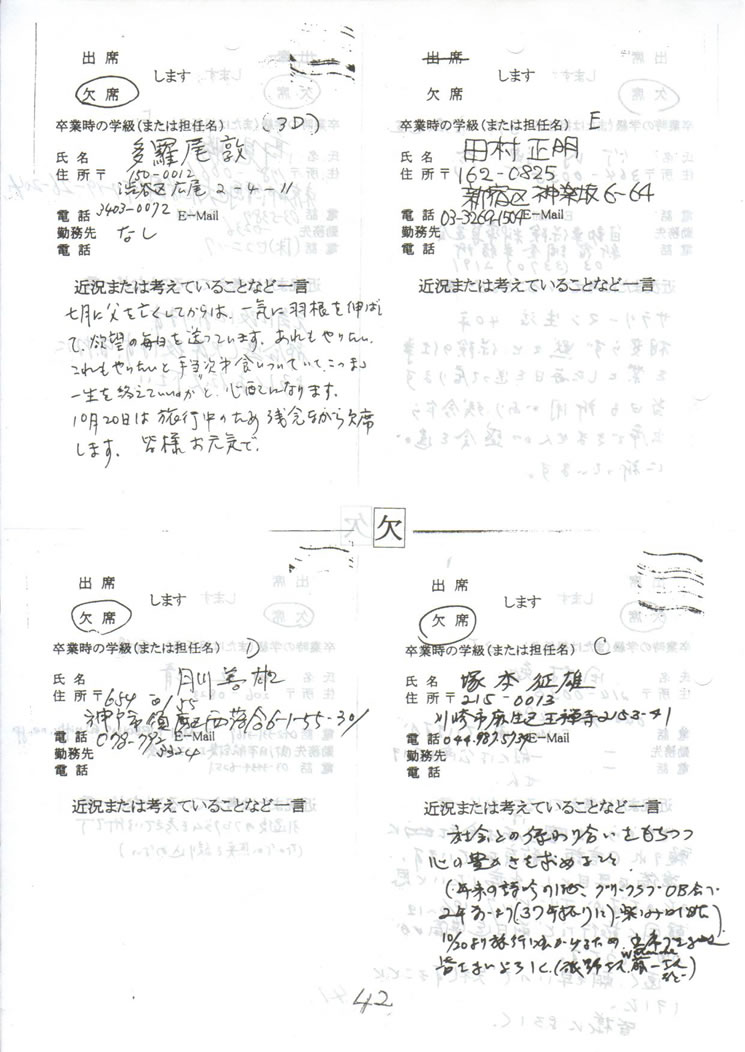 出 席
します
欠 席
卒業時の学級(または担任名) (3D)
氏 名 多羅尾 敦
住 所 〒 150-0012
渋谷区広尾2-4-11
電 話 3403-0072 E-Mail
勤務先 なし
電 話
近況または考えていることなど一言
七月に父を亡くしてからは、一気に羽根を伸ばし
て、欲望の毎日を送っています。あれもやりたい、
これもやりたいと手当次才食いついていて、
一生を終えていいのかと、心配になります。
10月20日は旅行中のため残念ながら欠席
します。 皆様お元気で。
出 席
します
欠 席
卒業時の学級(または担任名) E
氏 名 田村正明
住 所 〒162-0825
新宿区神楽坂6-64
電 話 03-3269-1504 E-Mail
勤務先
電 話
近況または考えていることなど一言
欠
出 席
します
欠 席
卒業時の学級(または担任名) D
氏 名 月川善雄
住 所 〒 654-0155
神戸市須磨区西落合6-1-55-301
電 話 078-793- E-Mail
5324
勤務先
電 話
近況または考えていることなど一言
出 席
します
欠 席
卒業時の学級(または担任名) C
氏 名 塚本征雄
住 所 〒 215-0013
川崎市麻生区王禅寺2153-41
電 話 044.987.5734 E-Mail
勤務先
電 話
近況または考えていることなど一言
社会との係わり合いをもちつつ
心の豊かさを求めること
(年来の詩吟の他、グリークラブOB会で
2年前より(37年振りに)
10/20より旅行に出かけるため、
皆さまによろしく。
42